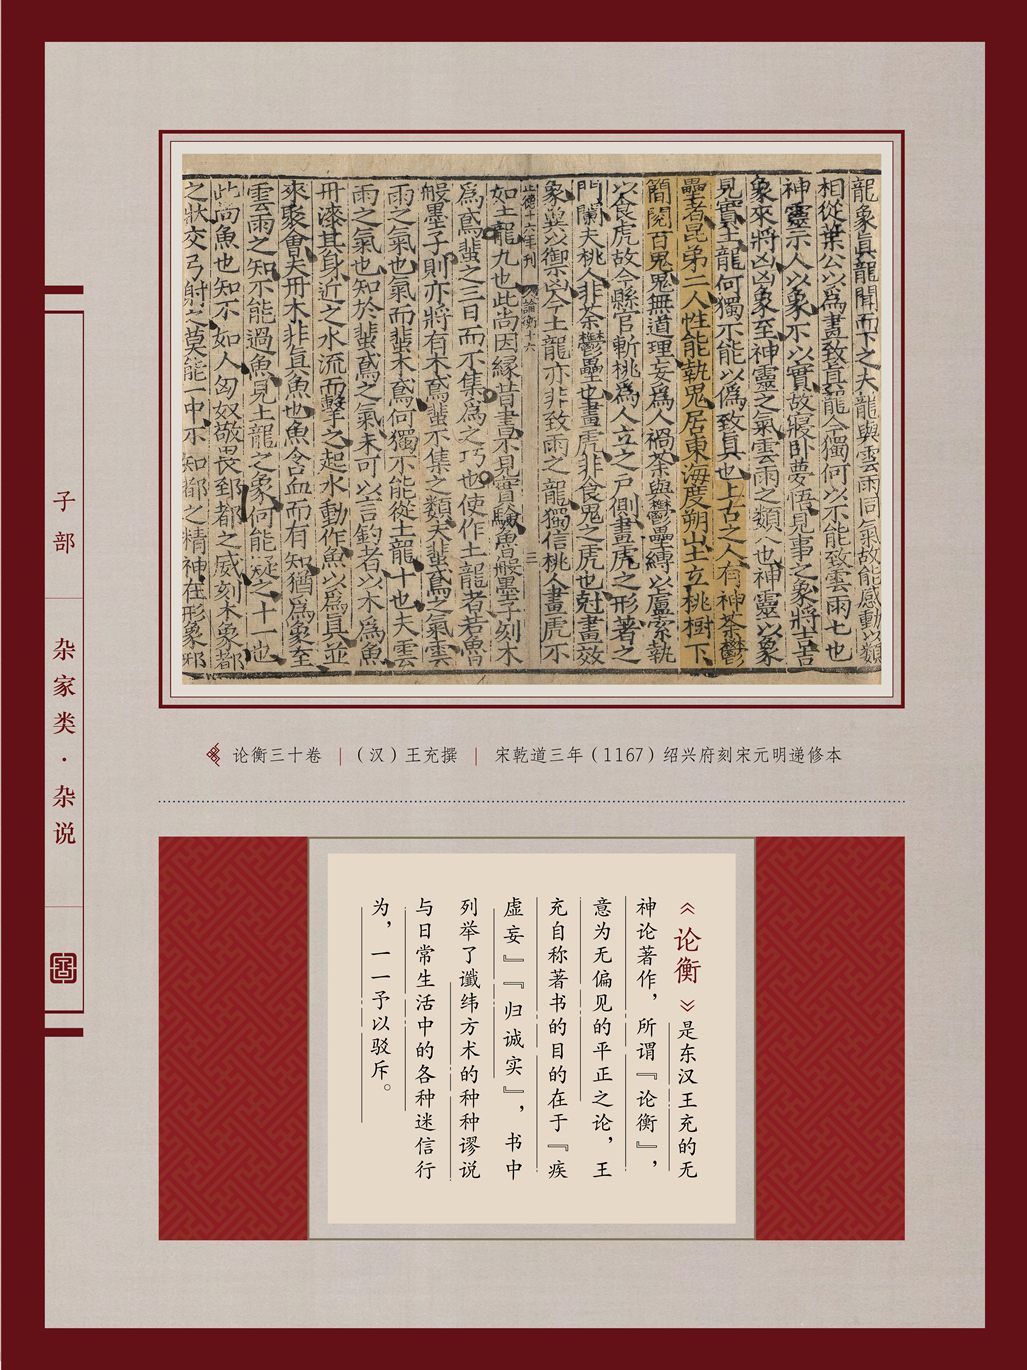 龍象眞龍聞而下之夫龍與雲雨同氣故能感動以類
相從葉公以爲畫致眞龍今獨何以不能致雲雨七也
神靈示人以象不以實故寢臥夢悟見事之象將吉
象來將凶凶象至神靈之氣雲雨之類八也神靈以象
見實土龍何獨不能以僞致眞也上古之人有神荼鬱
壘者昆弟二人性能執鬼居東海度朔山上立桃樹下
簡閱百鬼鬼無道理妄爲人禍荼與鬱壘縛以盧索執
以食虎故今縣官斬桃爲人立之戸側畫虎之形著之
門闌夫桃人非荼鬱壘也畫虎非食鬼之虎也刻畫效
象冀以禦凶今土龍亦非致雨之龍獨信桃人畫虎不
論衡十六
三
如土龍九也此尚因緣昔書不見實驗魯般墨子刻木
爲鳶蜚之三日而不集爲之巧也使作土龍者若魯
般墨子則亦將有木鳶蜚不集之類夫蜚鳶之氣雲
雨之氣也氣而蜚木鳶何獨不能從土龍十也夫雲
雨之氣也知於蜚鳶之氣未可以言釣者以木爲魚
丹漆其身近之水流而擊之起水動作魚以爲眞並
來聚會夫丹木非眞魚也魚含血而有知猶爲象至
雲雨之知不能過魚見土龍之象何能疑之十一也
此尚魚也知不如人匈奴敬畏郅都之威刻木象都
之狀交弓射之莫能一中不知都之精神在形象邪
子部
杂家类·杂说
论衡三十卷 | （汉）王充撰 | 宋乾道三年（1167）绍兴府刻宋元明递修本
《论衡》是东汉王充的无
神论著作，所谓『论衡』，
意为无偏见的平正之论，王
充自称著书的目的在于『疾
虚妄』『归诚实』，书中
列举了谶纬方术的种种谬说
与日常生活中的各种迷信行
为，一一予以驳斥。